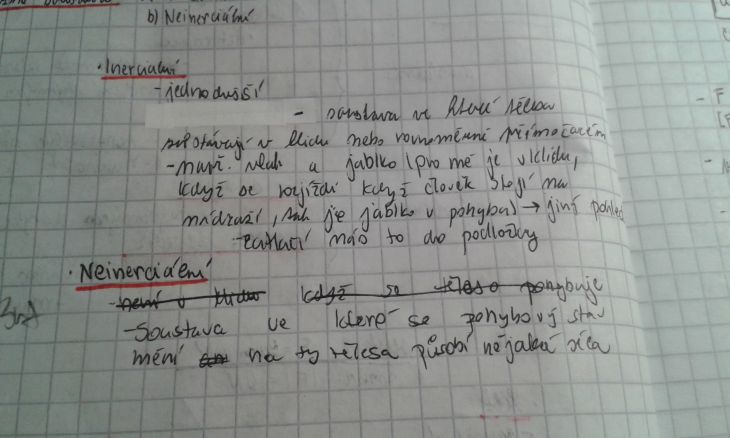 b) Neinerciální
• Inerciální
- jednodušší
- soustava ve které tělesa
setrvávají v klidu nebo rovnoměrně přímočarém
- např. vlak a jablko (pro mě je v klidu,
když se rozjíždí když člověk stojí na
nádraží, tak je jablko v pohybu) → jiný pohled
- zatlačí nás to do podložky
• Neinerciální
- není v klidu když se těleso pohybuje
- Soustava ve které se pohybový stav
mění na ty tělesa působí nějaká síla